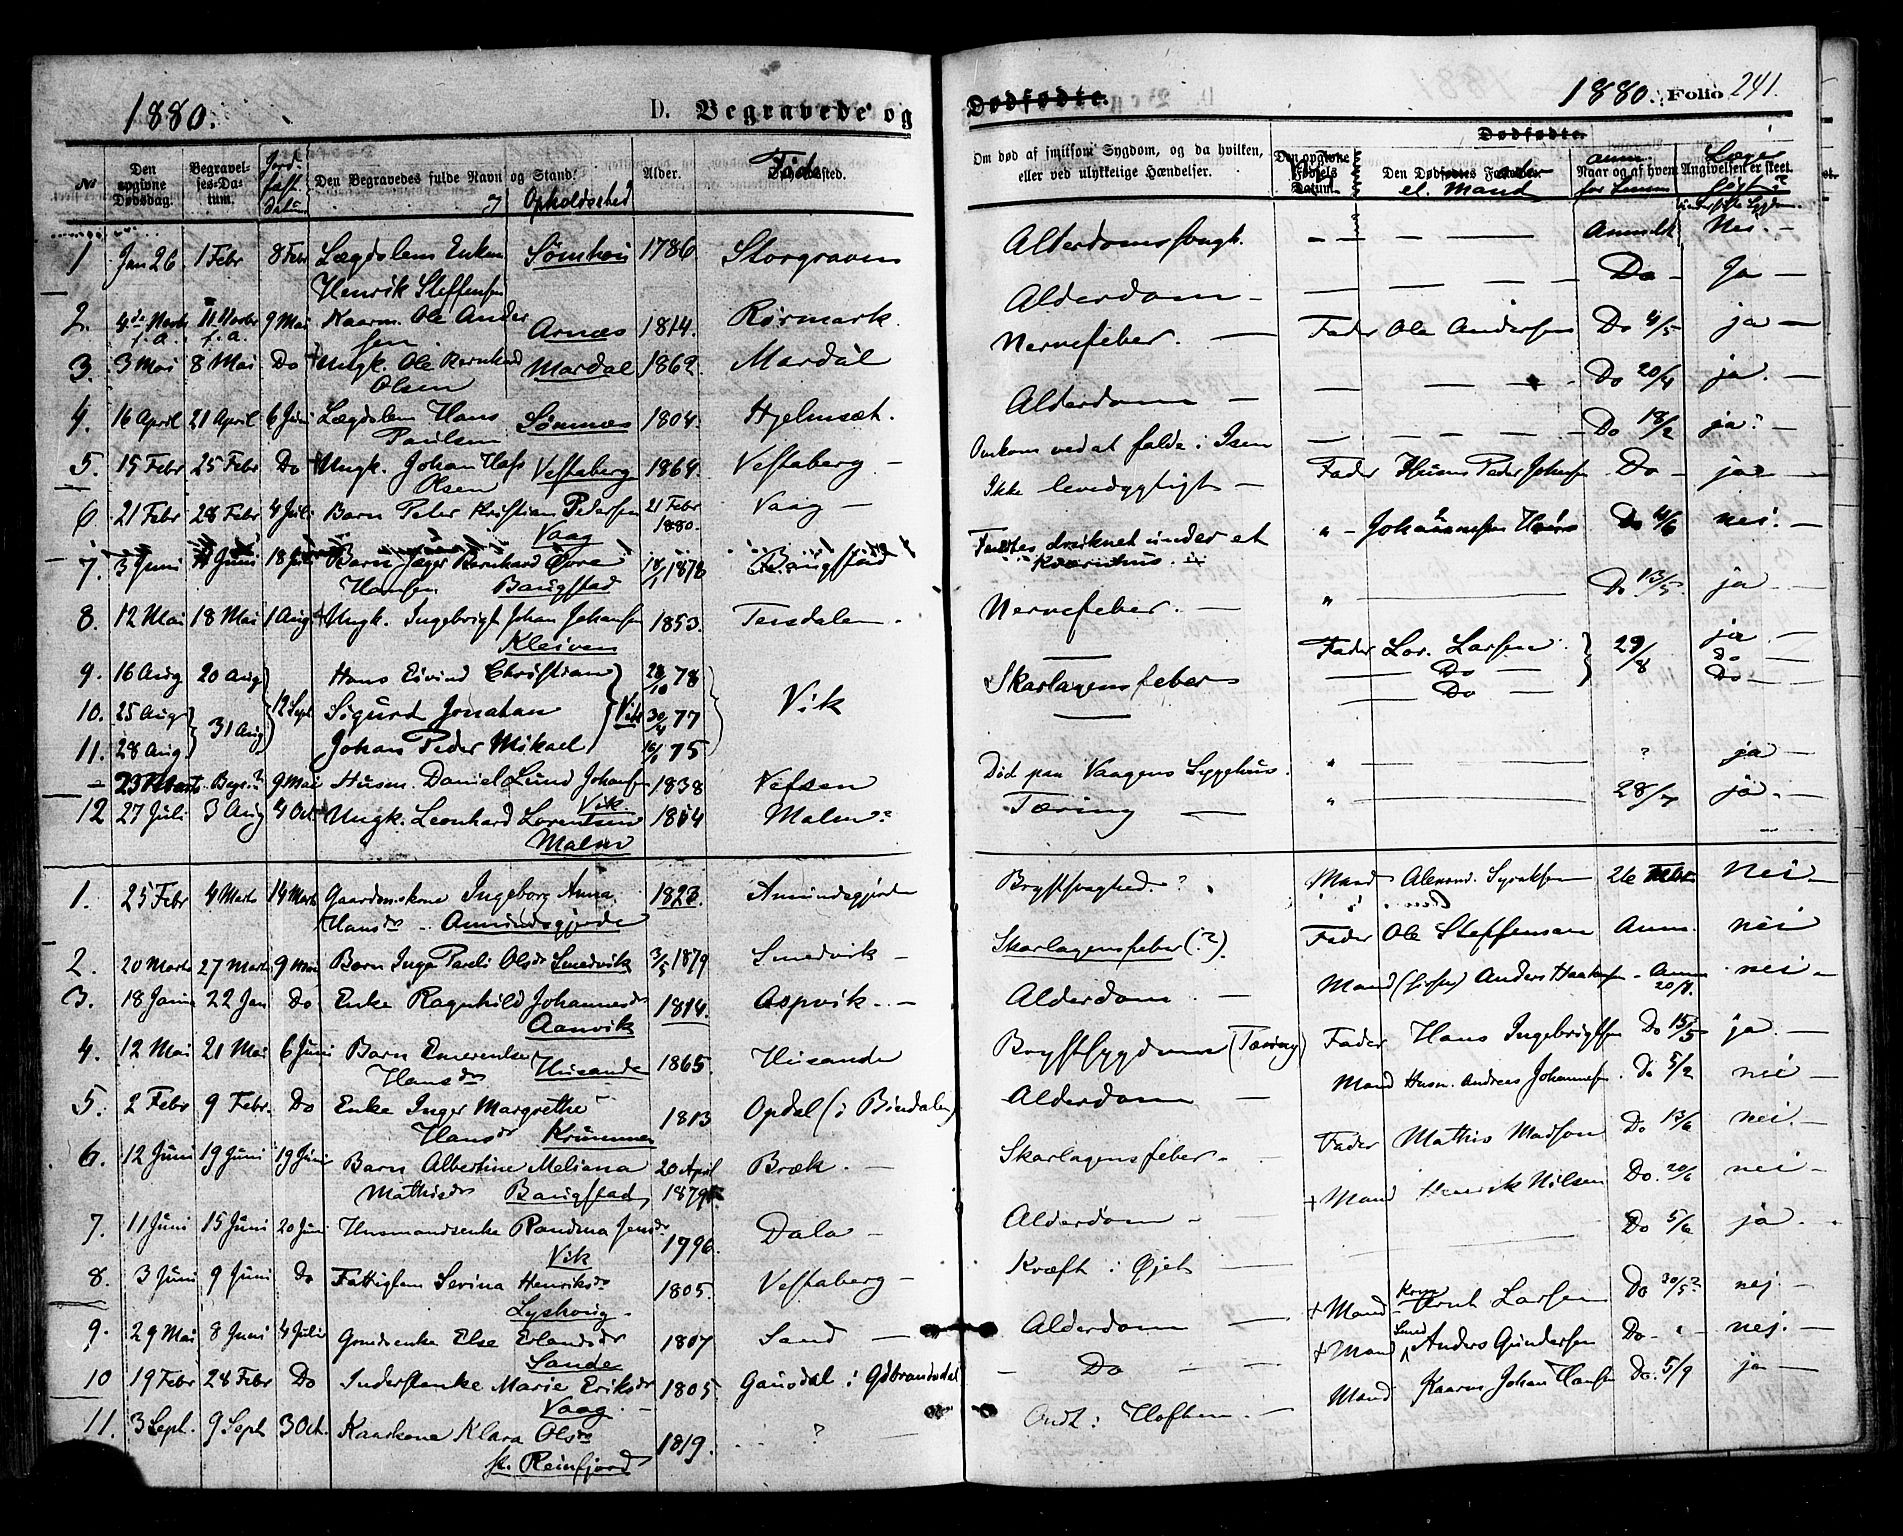 1880.
D. Begravede og
No
Den opgivne Dødsdag.
Begravelses-Datum.
Jordfæst
Den Begravedes fulde Navn og Stand.
Opholdssted
Alder.
Føde
1 Jan 26 1 Febr 8 Febr Lægdslem Enkem. Sømhou 1786 Storgraven
Henrik Steffensen
2. 4de Marts 11 Marts 9 Mai Kaarm. Ole Ander Arnæs 1814. Rørmark.
f.a. f.a. sen
3. 3 Mai 8 Mai Do Ungk. Ole Bernhard Mardal 1862 Mardal
Olsen
4. 16 April 21 April 6 Juni Lægdslem Hans Sømnæs 1804. Hjelmsæt.
Paulsen
5. 15 Febr 25 Febr Do Ungk. Johan Hofs Vestaberg 1864 Vestaberg -
Olsen
6 21 Febr 28 Febr 4 Juli Barn Peter Kristian Pedersen 21 Febr Vaag -
Vaag 1880.
7. 3 Juni Juni 18 Juli Barn Jæger Bernhard Øvre 1878 Bangstad
Hansen Bangstad
8. 12 Mai 18 Mai 1 Aug Ungk. Ingebrigt Johan Johansen 1853. Terdalen.
Kleiven
9. 16 Aug 20 Aug Hans Eivind Christian 28/10 78
10. 25 Aug 31 Aug 12 Sept Sigurd Jonatan Vik 30/4 77 Vik
11. 28 Aug Johan Peder Mikael 16/1 75
- 23 Marts Begr? 9 Mai Husm. Daniel Lund Johansen 1838 Vefsen
Vik
12 27 Juli 3 Aug 4 Oct. Ungk. Leonhard Lorentsen 1854 Malm?
Malm
1. 25 Febr 4 Marts 14 Marts Gaardmskone Ingeborg Anna 1823. Amundsgjorde
Hansdr. Amundsgjorde
2. 20 Marts 27 Marts 9 Mai Barn Inga Pareli Olsdr Smedvik 3/5 1879 Smedvik -
3. 18 Janu 22 Jan Do Enke Ragnhild Johannesdr 1814. Aspvik. -
Aanvik
4. 12 Mai 21 Mai 6 Juni Barn Emerentse Husande 1865. Husande
Hansdr
5. 2 Febr 9 Febr. Do Enke Inger Margrethe 1813 Opdal (i Bindalen)
Hansdr Krummen
6. 12 Juni 19 Juni 19 Juni Barn Albertine Meliana 20 April Bræk. -
Mathisdr Bangstad 1879
7. 11 Juni 15 Juni 20 Juni Husmandsenke Randina Jensdr 1796. Dala -
Vik
8. 3 Juni 9 Juni Do Fattiglem Serina Henriksdr 1805. Vestaberg -
Lyshoug
9. 29 Mai 8 Juni 4 Juli Grmdsenke Else Erlandsdr 1807 Sand -
Sande
10 19 Febr 28 Febr Do Inderstenke Marie Eriksdr 1805. Gausdal i Gdbrandsdal
Vaag
11. 3 Sept. 9 Sept 3 Oct. Kaarkone Klara Olsdr 1819. ? -
Reinfjord
Dødfødte.
1880. Folio 241.
Dødfødte.
Om død af smitsom Sygdom, og da hvilken, eller ved ulykkelige Hændelser.
Den opgivne Fødsels Datum.
Den Dødfødtes
el. Mand
Naar og af hvem Angivelsen er skeet.
Alderdomssvagh. - - - - - Anmeldt Nei. -
Alderdom - - - - Do - Ja -
Nervefeber. - Fader Ole Andersen Do 4/5 ja -
Alderdom - - - - Do 20/4 ja. -
Omkom ved at falde i Isen - - - Do 18/2 ja? -
Ikke levedygtigt - Fader Husm Peder Johnsen Do - ja -
Fandtes druknet under et " - Johannesen Do 4/6 nei. -
Nervefeber. - " - Do 13/5 ja -
Fader Lor. Larsen. 29/8 ja -
Skarlagensfeber - Do - Do
- Do - Do -
Død paa Vaagens Sygehus. " - ? ja -
Tæring - " - 28/7 ja. -
Brystsvaghed. ? Mand Alexand. Syvertsen 26 Febr Nei. -
Skarlagensfeber (?). Fader Ole Steffensen Anm. nei
Alderdom. - Mand Anders Haakensen - Anm 20/1. nei -
Brystsygdom (Tæring) Fader Hans Ingebrigtsen Do 15/5 ja. -
Alderdom - Mand Husm. Andreas Johannesen. Do 5/2 nei -
Skarlagensfeber. - Fader Mathis Madson Do 13/6 nei. -
Alderdom - + Mand Henrik Nilsen Do. 20/6 nei -
Kræft i Øjet - - Do 5/6 ja. -
Alderdom - + Mand Arnt Larsen Do 30/5? nej. -
- Do - + Mand Anders Gundersen Do - " - nej. -
Ondt i Hoften. - Mand Kaarm Johan Hansen Do. 5/9 ja -